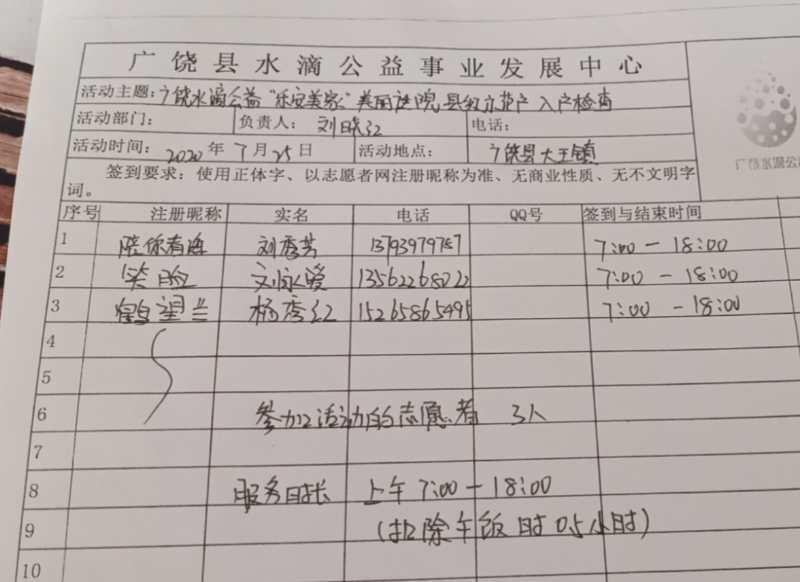 广饶县水滴公益事业发展中心
活动主题：广饶水滴公益"乐安美家"美丽庭院县级示范户入户检查
活动部门： 负责人： 刘晓红 电话：
活动时间： 2020年7月25日 活动地点： 广饶县大王镇
签到要求：使用正体字、以志愿者网注册昵称为准、无商业性质、无不文明字
词。
序号 注册昵称 实名 电话 QQ号 签到与结束时间
1 陪你看海 刘秀芳 13793979787 7:00-18:00
2 笑脸 刘咏 13562268022 7:00-18:00
3 鹤望兰 杨秀红 15265865495 7:00-18:00
4
5
6 参加活动的志愿者 3人
7
8 服务时长 上午7:00-18:00
9 (扣除午饭时0.5小时)
10
广饶水滴公